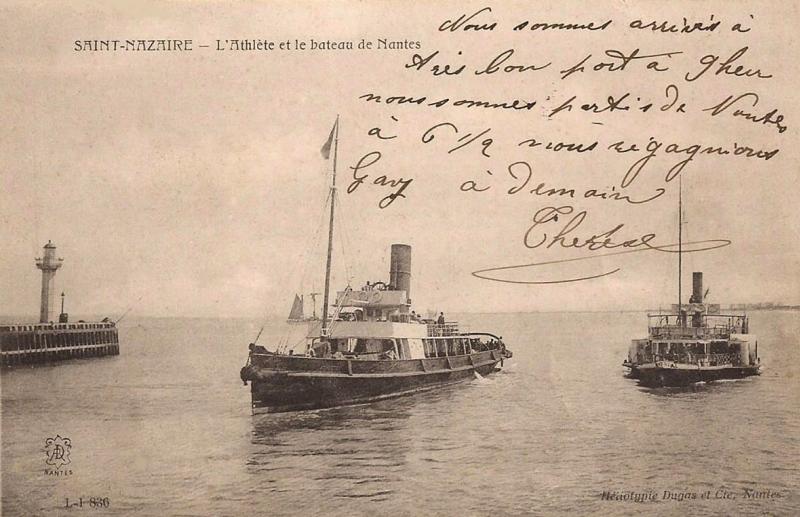 SAINT-NAZAIRE – L'Athlète et le bateau de Nantes
Nous sommes arrivés à
Très bon port à 9 heur
nous sommes partis de Nantes
à 6 1/2 nous régagnions
à Demain
Thérèse
AD
NANTES
L-I 836
Héliotypie Dugas et Cie, Nantes